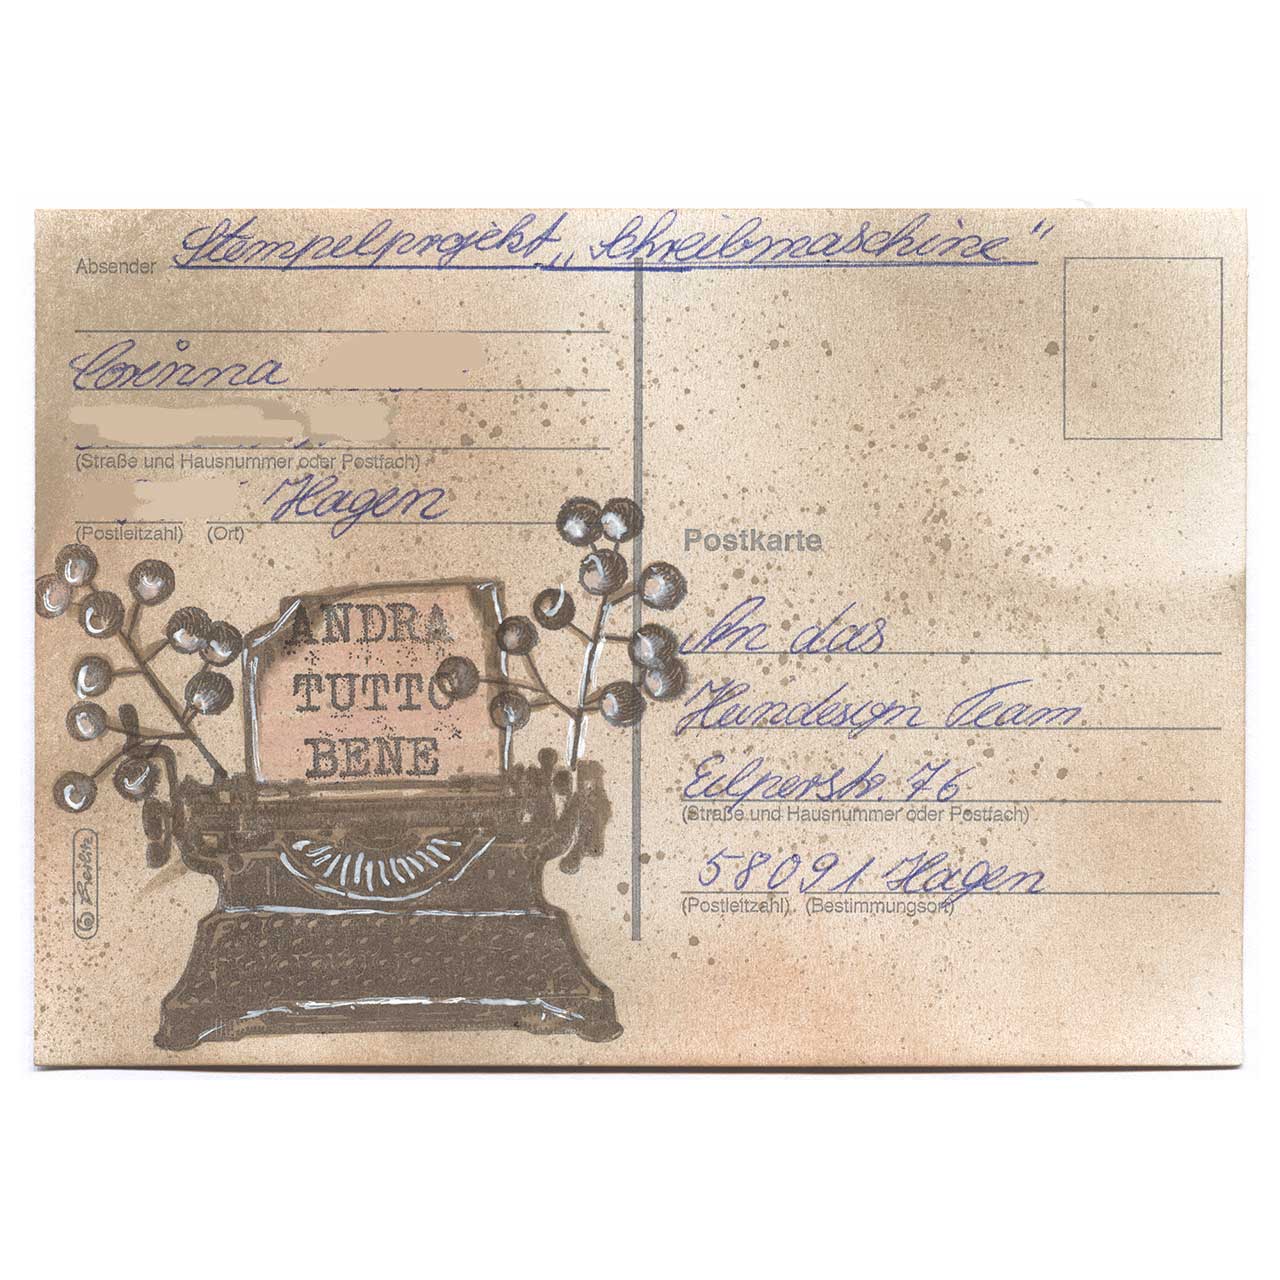 Stempelprojekt „Schreibmaschine“
Absender
Corinna
(Straße und Hausnummer oder Postfach)
Hagen
(Postleitzahl) (Ort)
Postkarte
ANDRA
TUTTO
BENE
An das
Heindesign Team
Eilperstr. 76
(Straße und Hausnummer oder Postfach)
58091 Hagen
(Postleitzahl) (Bestimmungsort)
Herlitz